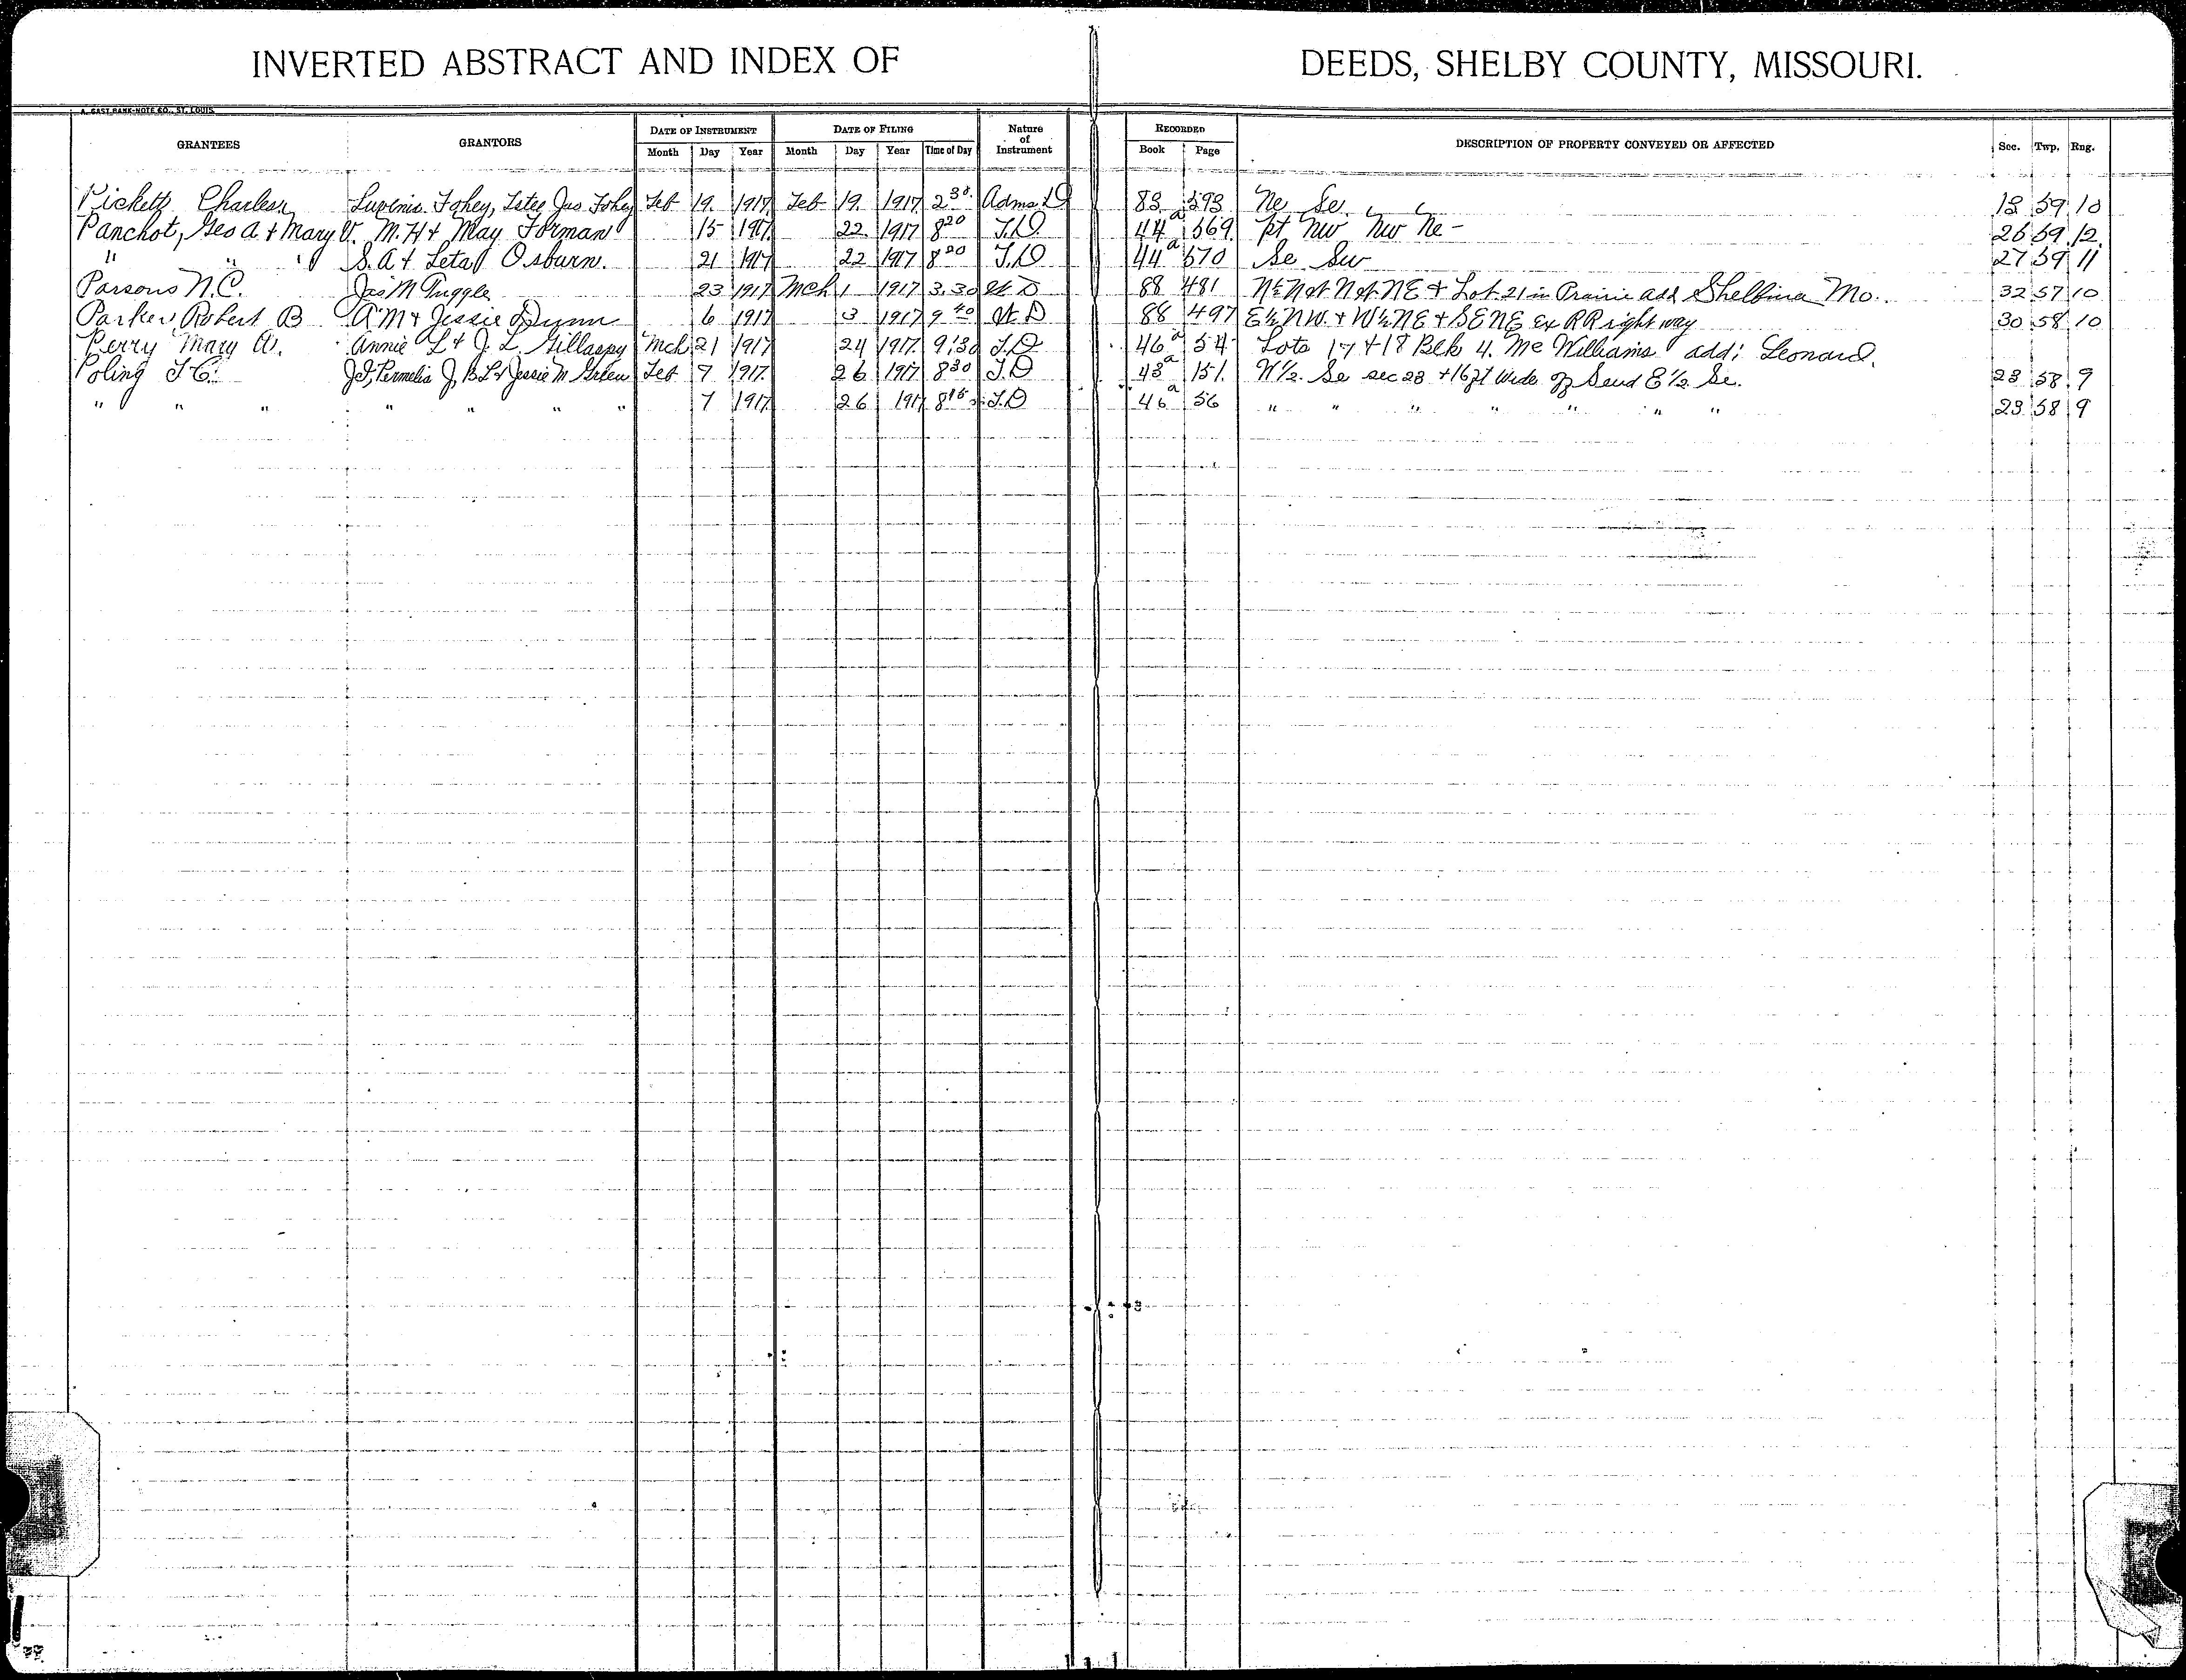 INVERTED ABSTRACT AND INDEX OF DEEDS, SHELBY COUNTY, MISSOURI.
GRANTEES GRANTORS DATE OF INSTRUMENT DATE OF FILING Nature of Instrument RECORDED DESCRIPTION OF PROPERTY CONVEYED OR AFFECTED Sec. Twp. Rng.
Month Day Year Month Day Year Time of Day Book Page
Pickett Charles Fohey, Jas Fohey Feb 19 1917 Feb 19 1917 2 30 Adms. D 83 393 Ne Se 13 59 10
Panchot, Geo A. & Mary V. M. H & May Forman 15 1917 22 1917 8 20 T.D 44 a 569 pt Nw Nw Ne - 26 59 12
" " " S. A & Leta Osburn. 21 1917 22 1917 8 20 T.D 44 a 570 Se Sw 27 59 11
Parsons N.C. Jas M Tuggle 23 1917 Mch 1 1917 3.30 W D 88 481 NE & Lot 21 in Prairie add Shelbina Mo. 32 57 10
Parker Robert B A M & Jessie Dunn 6 1917 3 1917 9 40 W. D 88 497 E½ NW. & W½ NE & SE NE Ex R R right way 30 58 10
Perry Mary A. Annie L & J. L. Gillaspy Mch 21 1917 24 1917 9:30 T.D 46 a 54 Lots 17 & 18 Blk 4. Mc Williams add; Leonard.
Poling T C. Permelia J, B L & Jessie M Green Feb 7 1917 26 1917 8 30 T.D 43 a 151 W ½. Se sec 23 & 16 ft wide off Send E ½ Se. 23 58 9
" " " " " " " 7 1917 26 1917 8 15 T.D 46 a 56 " " " " " " " 23 58 9